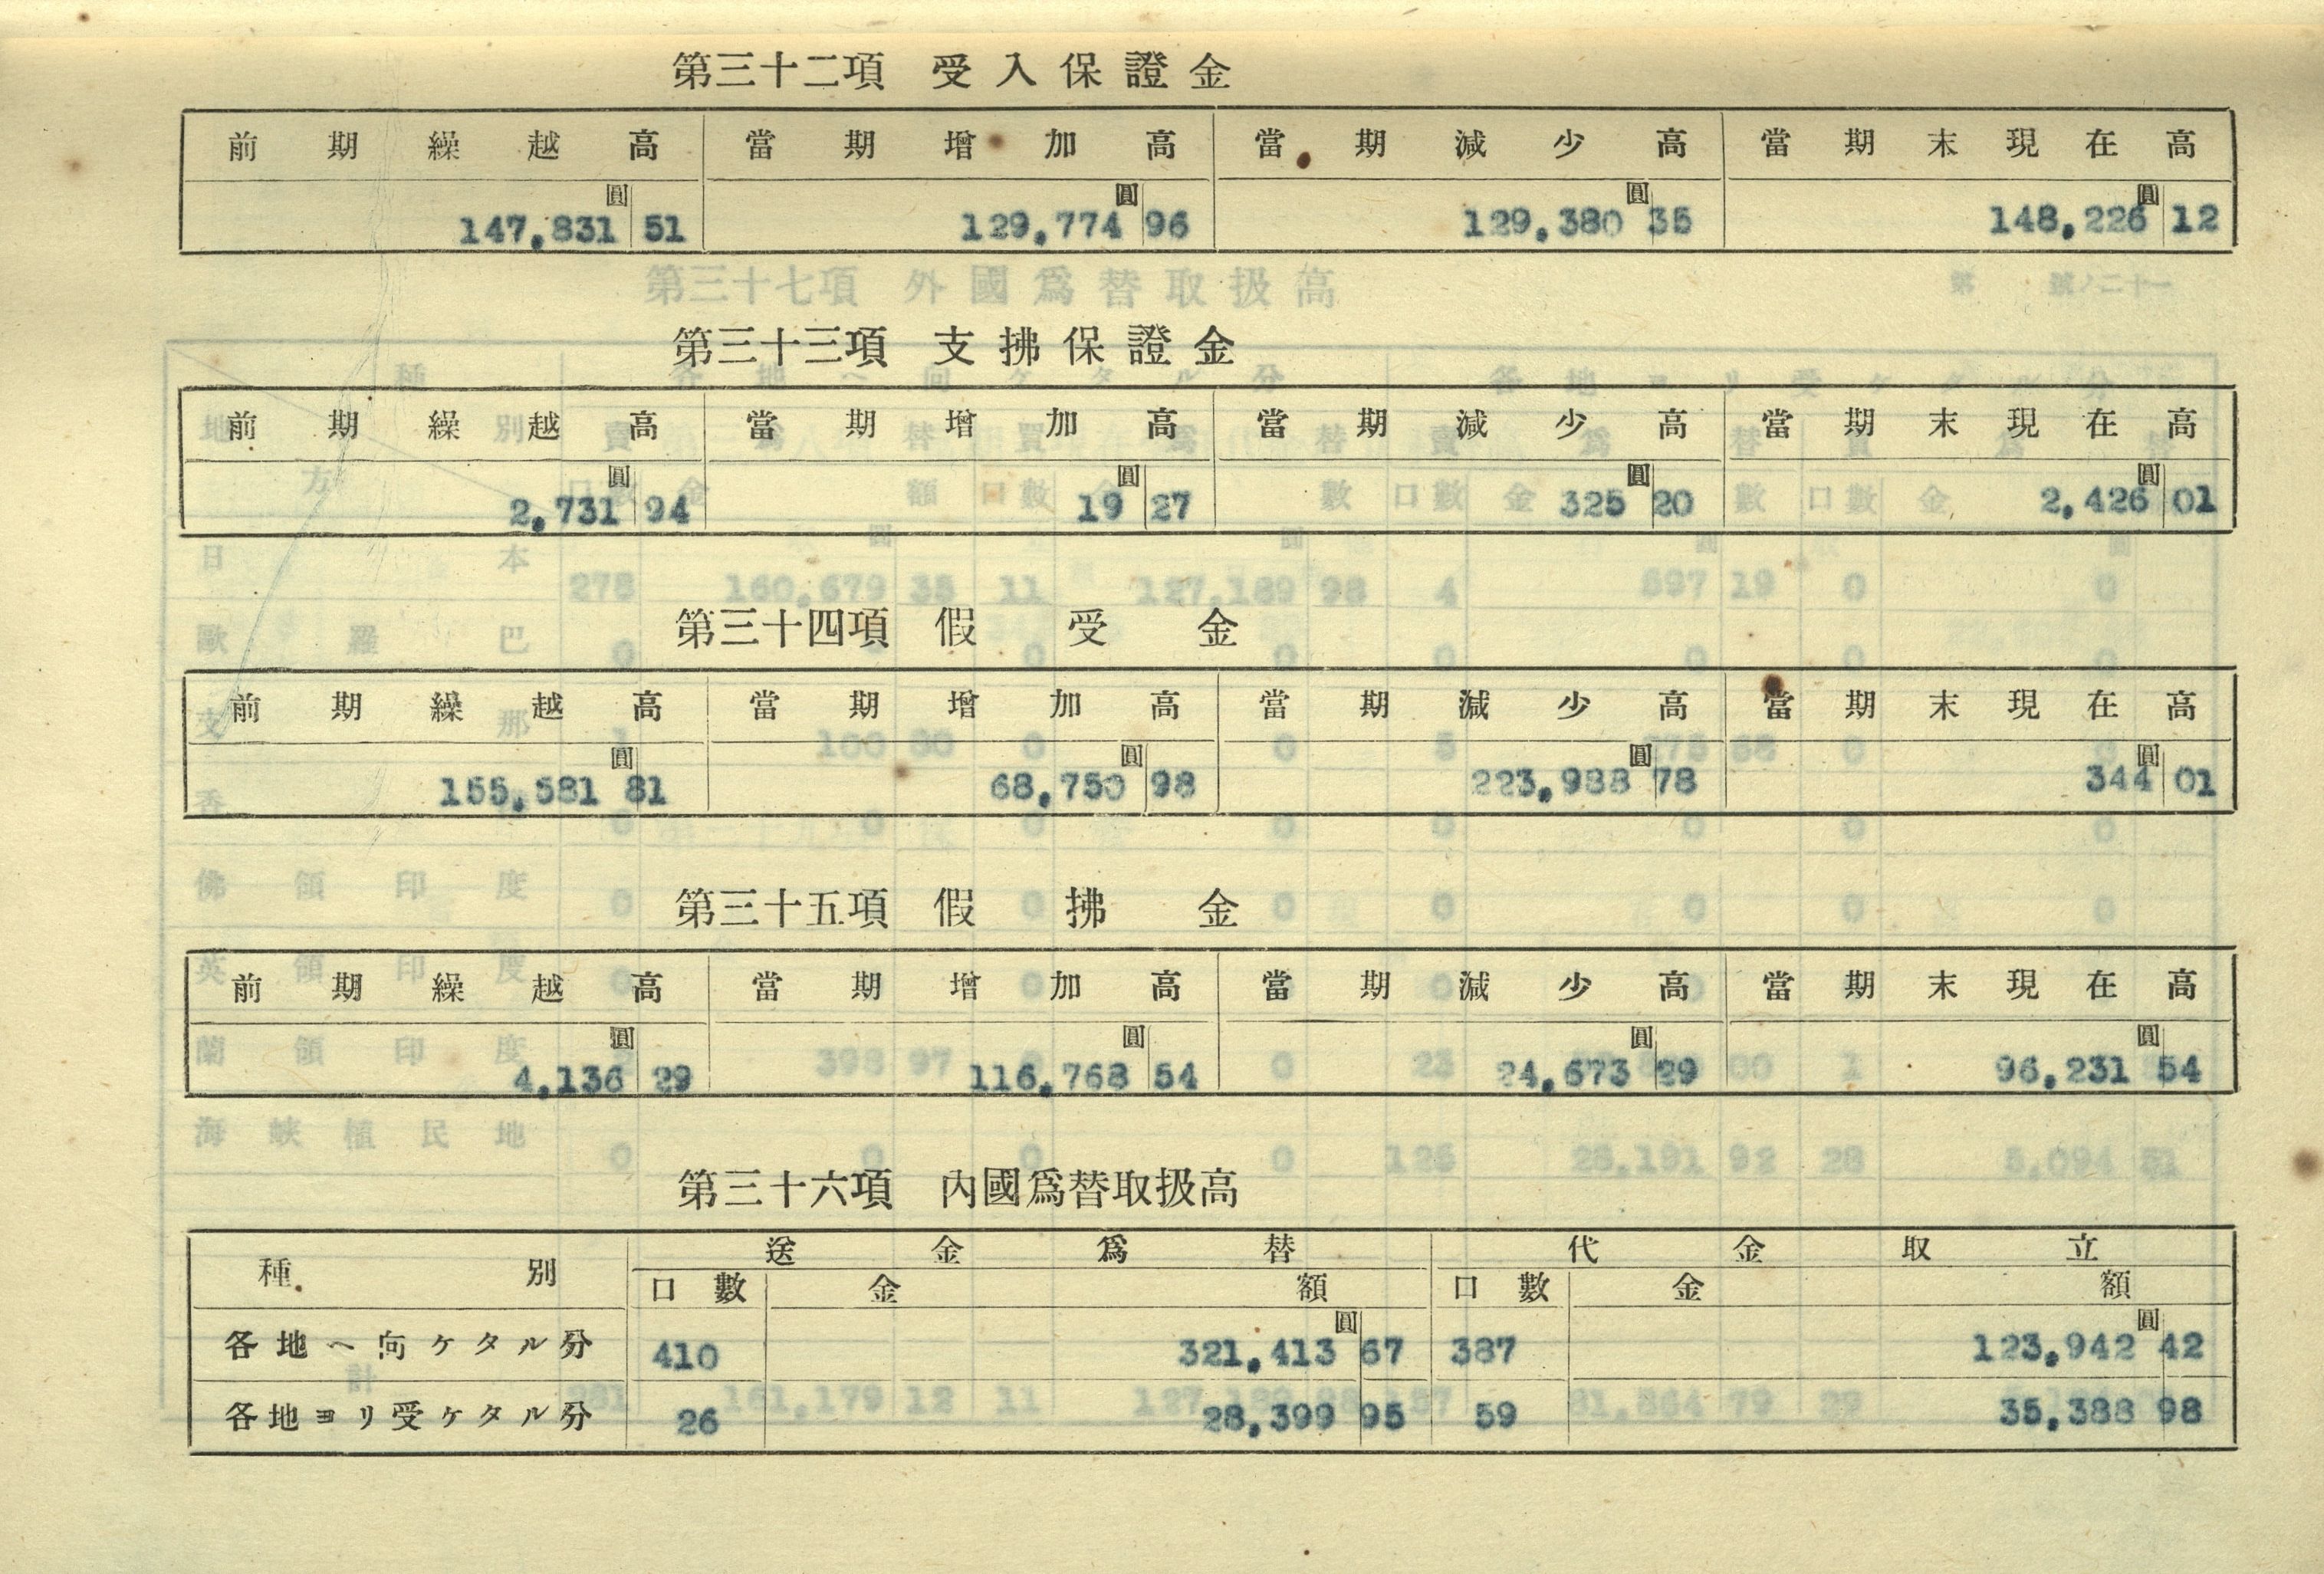 第三十二項 受入保證金
前期繰越高 當期增加高 當期減少高 當期末現在高
圓 圓 圓 圓
147,831 51 129,774 96 129,380 35 148,226 12
第三十三項 支拂保證金
前期繰越高 當期增加高 當期減少高 當期末現在高
圓 圓 圓 圓
2,731 94 19 27 325 20 2,426 01
第三十四項 假受金
前期繰越高 當期增加高 當期減少高 當期末現在高
圓 圓 圓 圓
155,581 81 68,750 98 223,988 78 344 01
第三十五項 假拂金
前期繰越高 當期增加高 當期減少高 當期末現在高
圓 圓 圓 圓
4,136 29 116,768 54 24,673 29 96,231 54
第三十六項 內國爲替取扱高
種別 送金爲替 代金取立
口數 金額 口數 金額
圓 圓
各地ヘ向ケタル分 410 321,413 67 387 123,942 42
各地ヨリ受ケタル分 26 28,399 95 59 35,388 98